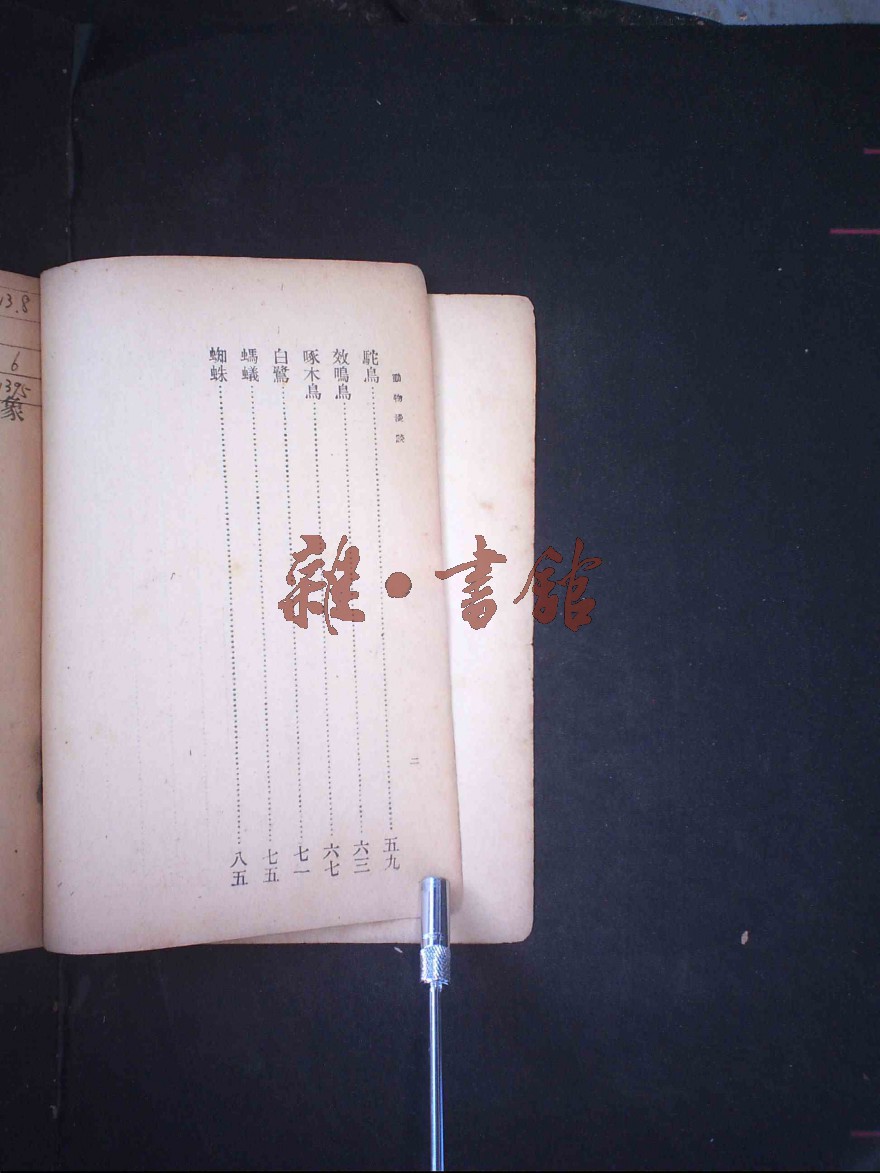 動物談談
二
駝鳥 五九
效鳴鳥 六三
啄木鳥 六七
白鷺 七一
螞蟻 七五
蜘蛛 八五
雜·書館
13.8
6
1395
象